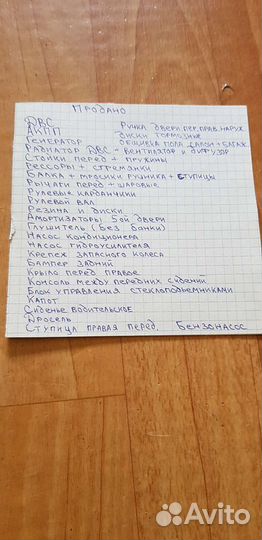 Продано
ДВС
АКПП Ручка двери пер.прав.наруж
Генератор диски тормозные
Радиатор ДВС + вентилятор и диффузор обшивка пола салон + багаж.
Стойки перед + пружины
Рессоры + стремянки
Балка + тросики ручника + ступицы
Рычаги перед + шаровые
Рулевые карданчики
Рулевой вал
Резина и диски
Амортизаторы 5ой двери
Глушитель (без банки)
Насос кондиционера
Насос гидроусилителя
Крепеж запасного колеса
Бампер задний
Крыло перед правое
Консоль между передних сидений
Блок управления стеклоподъемниками
Капот
Сиденье водительское
Дросель
Ступица правая перед. Бензонасос
Avito